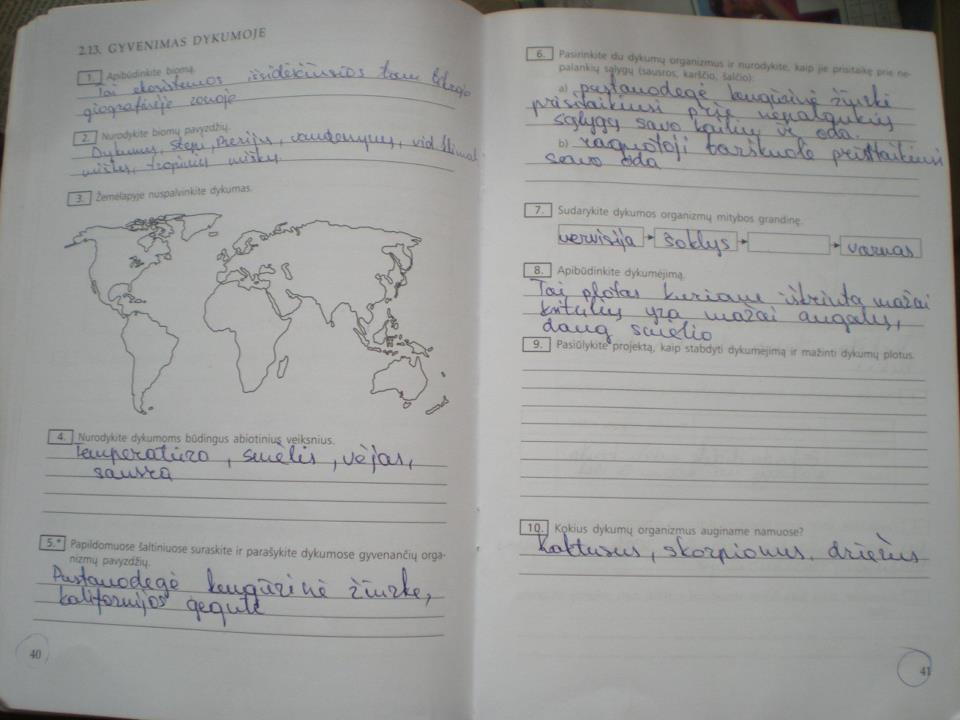 2.13. GYVENIMAS DYKUMOJE
1. Apibūdinkite biomą.
Tai ekosistemos išsidėsčiusios tam tikroje
geografinėje zonoje
2. Nurodykite biomų pavyzdžių.
Dykumos, stepė, Prerijos, vandenynus, vid. klimat.
miškus, tropinius miškus.
3. Žemėlapyje nuspalvinkite dykumas.
4. Nurodykite dykumoms būdingus abiotinius veiksnius.
Temperatūra, smėlis, vėjas,
sausra
5.* Papildomuose šaltiniuose suraskite ir parašykite dykumose gyvenančių orga-
nizmų pavyzdžių.
Pustauodegė kengūrinė žiurkė,
kalifornijos gegutė
40
6. Pasirinkite du dykumų organizmus ir nurodykite, kaip jie prisitaikę prie ne-
palankių sąlygų (sausros, karščio, šalčio):
a) pustauodegė kengūrinė žiurkė
prisitaikiusi prie nepalankių
sąlygų savo kailiu ir oda.
b) raguotoji barškuolė prisitaikiusi
savo oda
7. Sudarykite dykumos organizmų mitybos grandinę.
šoklys varnas
8. Apibūdinkite dykumėjimą.
Tai plotas kuriame iškrinta mažai
kritulių yra mažai augalų,
daug smėlio
9. Pasiūlykite projektą, kaip stabdyti dykumėjimą ir mažinti dykumų plotus.
10. Kokius dykumų organizmus auginame namuose?
Kaktusus, skorpionus, driežus
41